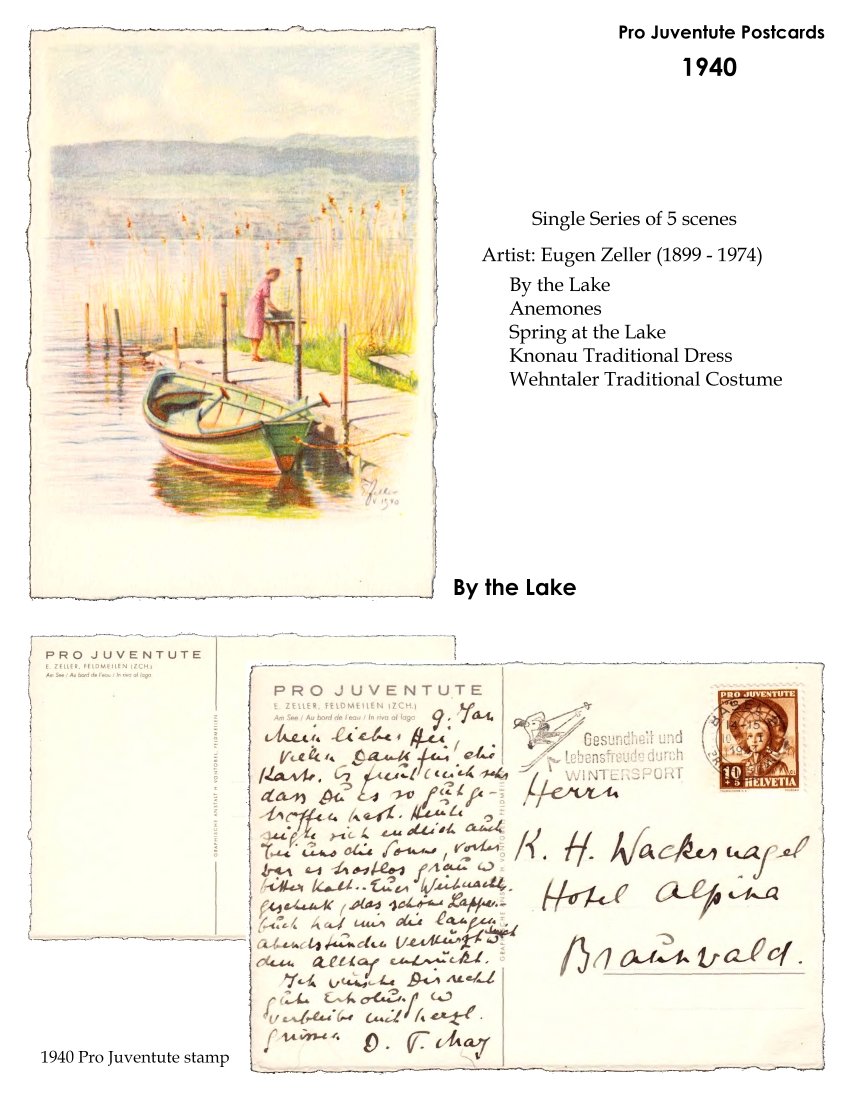 Pro Juventute Postcards
1940
Single Series of 5 scenes
Artist: Eugen Zeller (1899 - 1974)
By the Lake
Anemones
Spring at the Lake
Knonau Traditional Dress
Wehntaler Traditional Costume
E. Zeller
1940
By the Lake
PRO JUVENTUTE
E. ZELLER, FELDMEILEN (ZCH.)
Am See / Au bord de l'eau / In riva al lago
GRAPHISCHE ANSTALT H. VONTOBEL, FELDMEILEN
PRO JUVENTUTE
E. ZELLER, FELDMEILEN (ZCH.)
Am See / Au bord de l'eau / In riva al lago
9. Jan
Mein lieber Hei,
Vielen Dank für die
Karte. Es freut mich sehr
dass Du es so gut ge-
troffen hast. Heute
zeigte sich endlich auch
bei uns die Sonne, vorher
war es trostlos grau u
bitter kalt. Euer Weihnachts-
geschenk, das schöne Lappen-
buch hat mir die langen
abendstunden verkürzt u mich
dem Alltag entrückt.
Ich wünsche Dir recht
gute Erholung u
verbleibe mit herzl.
grüssen D. T. May
Gesundheit und
Lebensfreude durch
WINTERSPORT
PRO JUVENTUTE
10
+5
HELVETIA
Herrn
K. H. Wackernagel
Hotel Alpina
Braunwald.
1940 Pro Juventute stamp